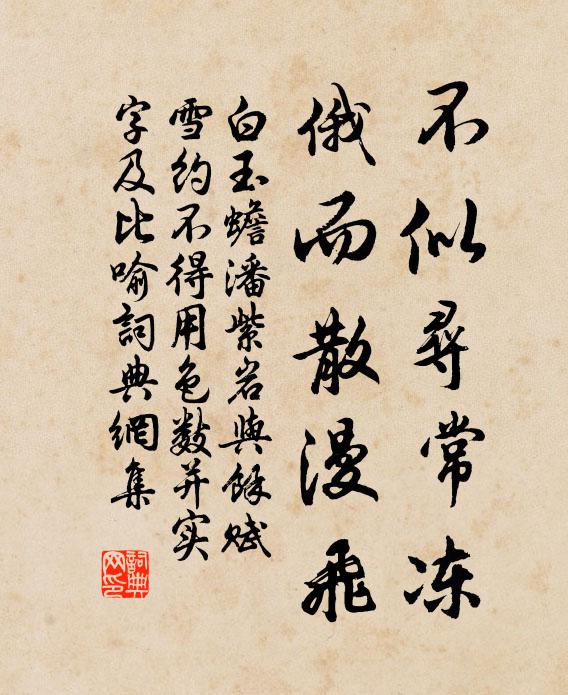 不似尋常冻
俄而散漫飛
白玉蟾潘紫岩與餘赋
雪约不得用色数并实
字及比喻詞典網集
詞典网印